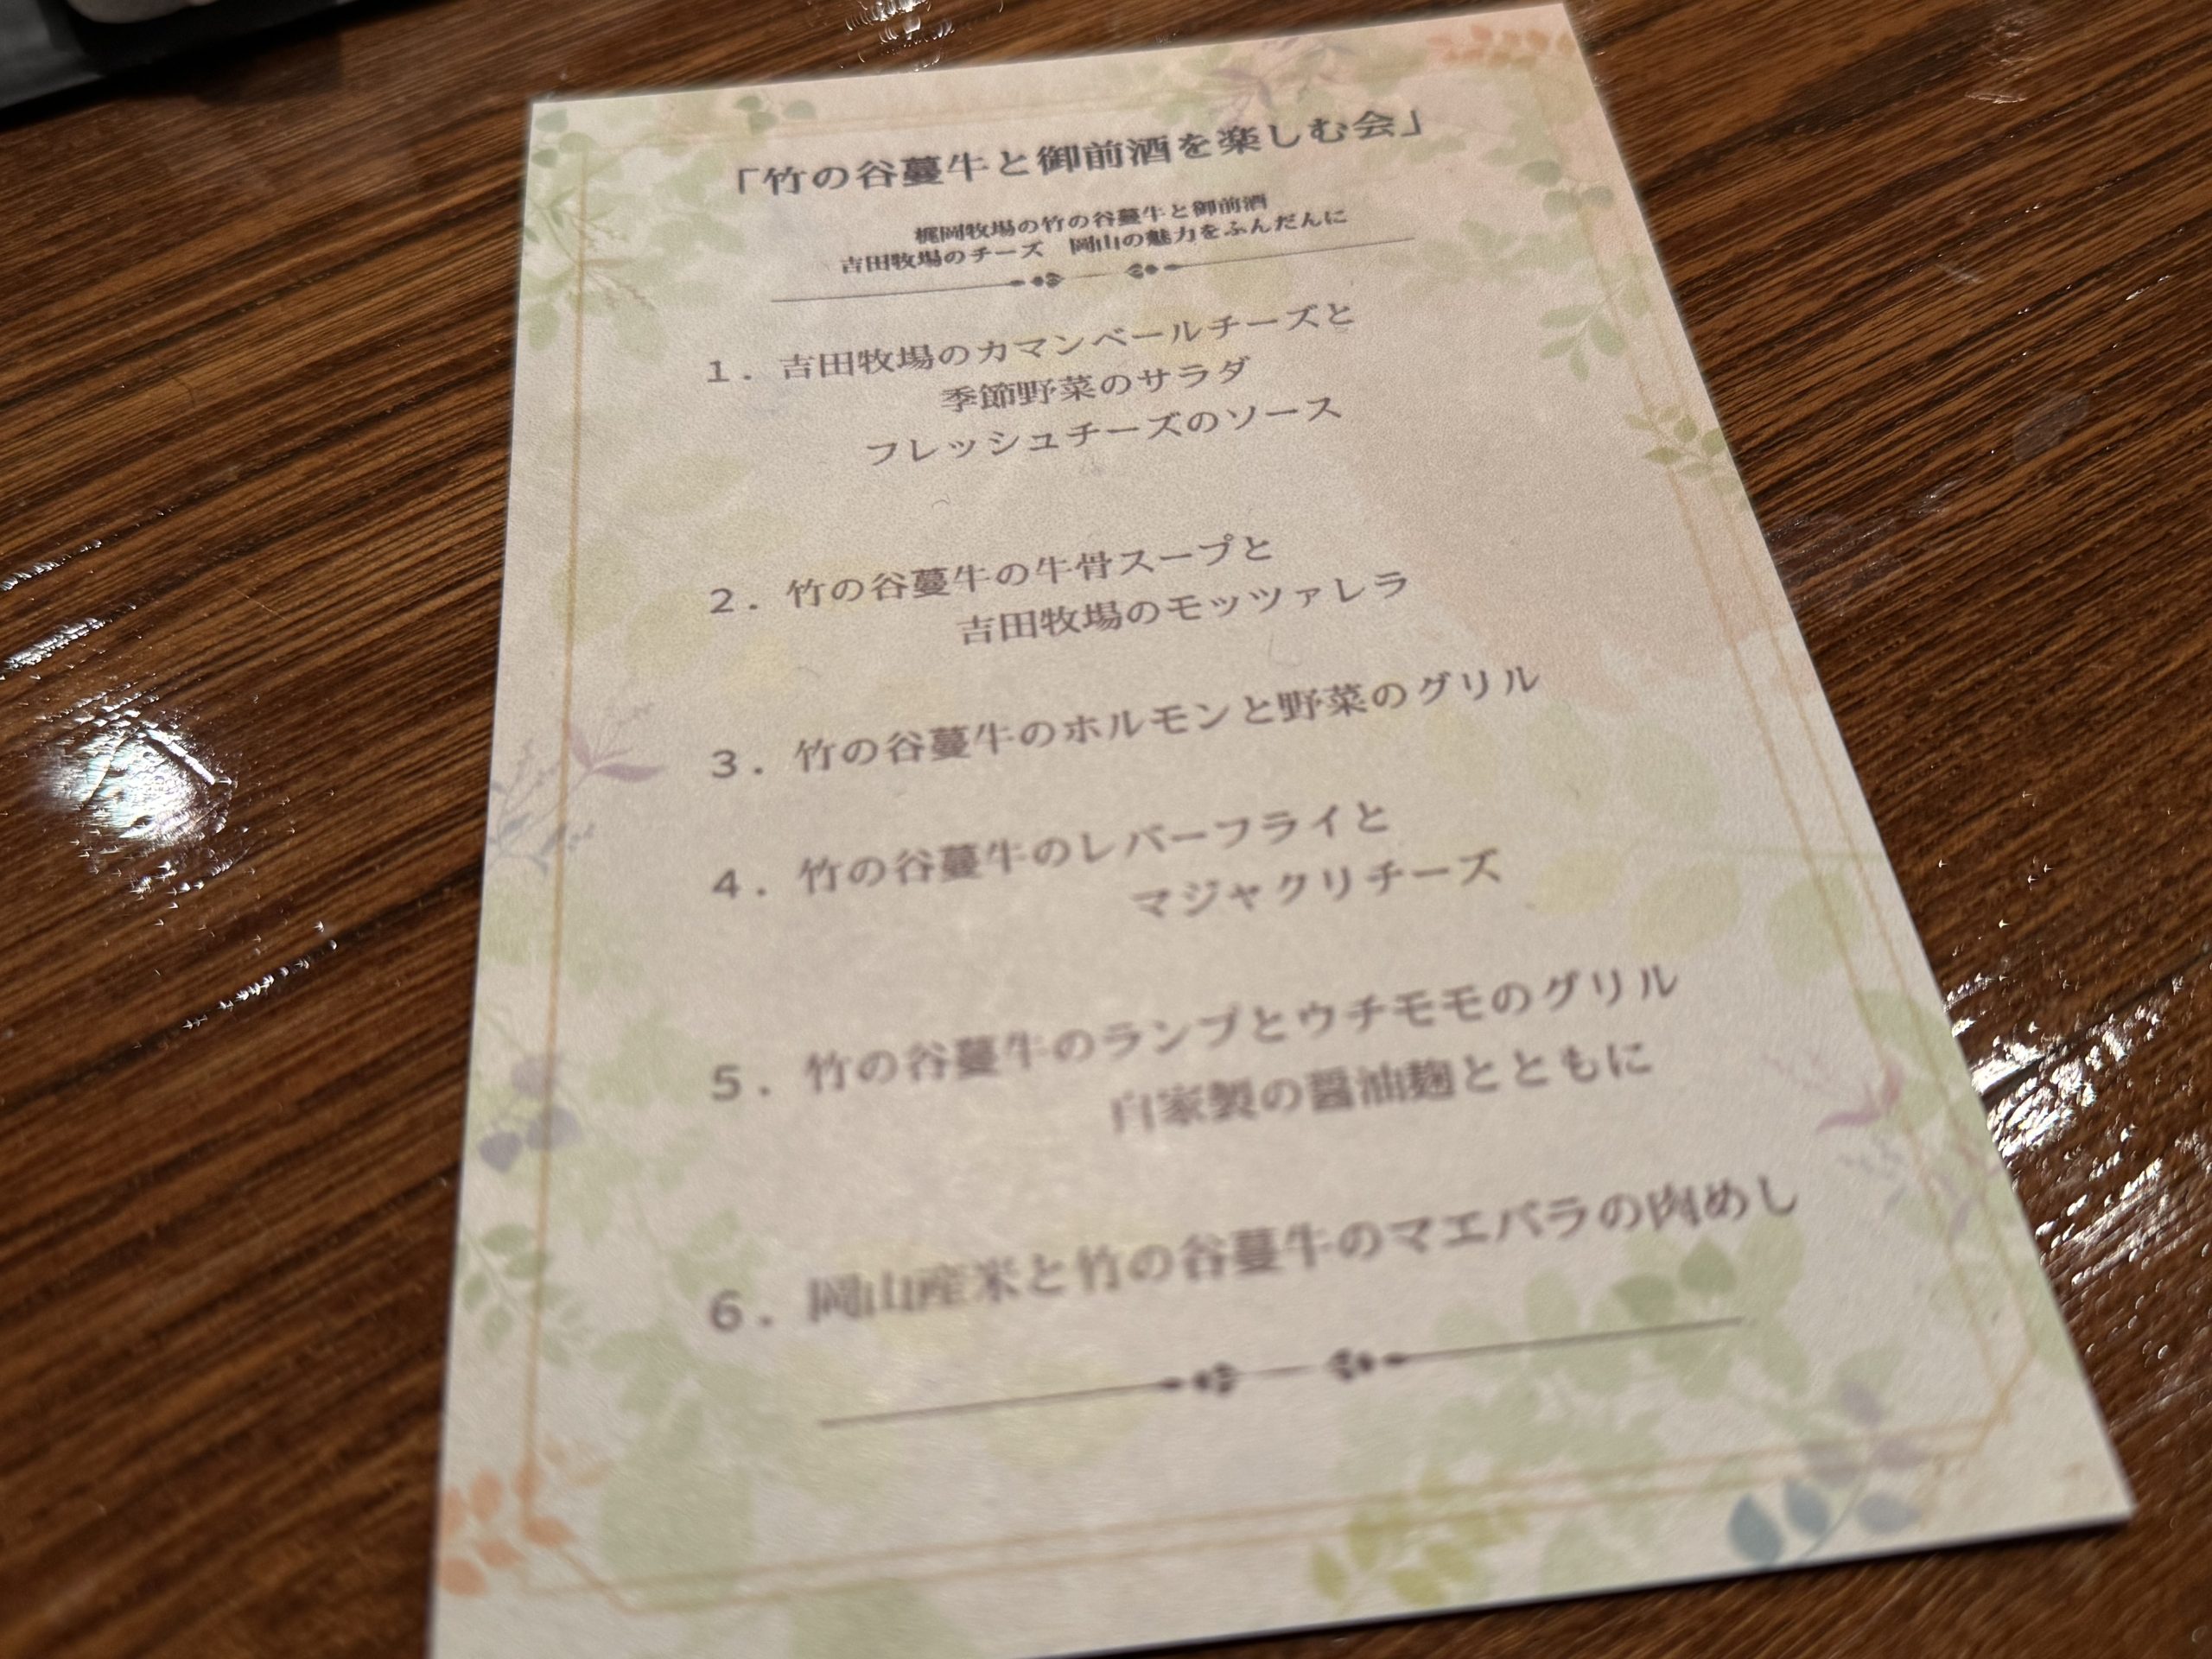 「竹の谷蔓牛と御前酒を楽しむ会」
梶岡牧場の竹の谷蔓牛と御前酒
吉田牧場のチーズ　岡山の魅力をふんだんに
１．吉田牧場のカマンベールチーズと
季節野菜のサラダ
フレッシュチーズのソース
２．竹の谷蔓牛の牛骨スープと
吉田牧場のモッツァレラ
３．竹の谷蔓牛のホルモンと野菜のグリル
４．竹の谷蔓牛のレバーフライと
マジヤクリチーズ
５．竹の谷蔓牛のランプとウチモモのグリル
自家製の醤油麹とともに
６．岡山産米と竹の谷蔓牛のマエバラの肉めし